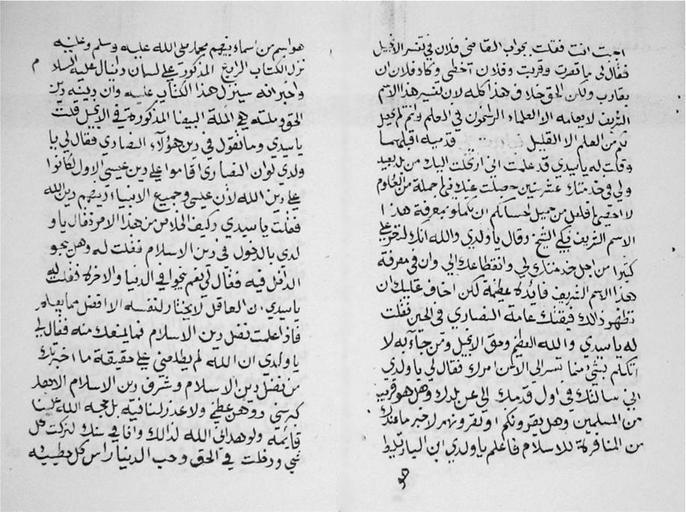 اجبت انت فقلت بجواب القاضي فلان في تفسير الانجيل
فقال لي ما قصرت وقربت وفلان اخطى وكاد فلان ان
يقارب ولكن الحق خلاف هذا كله لان تفسير هذا الاسم
الشريف لا يعلمه الا العلماء الراسخون في العلم وانتم لم يحصل
لكم من العلم الا القليل قدميه اقبلهما
وقلت له يا سيدي قد علمت اني ارتحلت اليك من بلد بعيد
ولي في خدمتك عشر سنين حصلت عنك فيها جملة من العلوم
لا احصيها فلعل من جميل احسانكم ان تكملو بمعرفة هذا
الاسم الشريف فبكي الشيخ وقال يا ولدي والله انك لتعز علي
كثيرا من اجل خدمتك لي وانقطاعك الي وان في معرفة
هذا الاسم الشريف فائدة عظيمة لكن اخاف عليك ان
تظهر ذلك فيقتلك عامة النصارى في الحين فقلت
له يا سيدي والله العظيم وحق الانجيل ومن جاء به لا
اتكلم بشي مما تسره الي الا عن امرك فقال لي يا ولدي
اني سالتك في اول قدومك الي عن بلدك وهل هو قريب
من المسلمين وهل يغزونكم او تغزونهم لاختبر ما عندك
من المنافرة للاسلام فاعلم يا ولدي ان البارقليط
هو
هو اسم من اسماء نبيهم محمد صلى الله عليه وسلم وعليه
نزل الكتاب الرابع المذكور على لسان دانيال عليه السلام
واخبر انه سينزل هذا الكتاب عليه وان دينه دين
الحق وملته هي الملة البيضا المذكورة في الانجيل قلت
يا سيدي وما تقول في دين هؤلاء النصارى فقال لي يا
ولدي لو ان النصارى اقاموا على دين عيسى الاول لكانوا
على دين الله لان عيسى وجميع الانبياء دينهم دين الله
فقلت يا سيدي وكيف الخلاص من هذا الامر فقال يا و
لدي بالدخول في دين الاسلام فقلت له وهل ينجو
الداخل فيه فقال لي نعم ينجوا في الدنيا والاخرة فقلت له
يا سيدي ان العاقل لا يختار لنفسه الا افضل مما يعلم
فاذا علمت فضل دين الاسلام فما يمنعك منه فقال لي
يا ولدي ان الله لم يطلعني على حقيقة ما اخبرتك
من فضل دين الاسلام وشرف دين الاسلام الا بعد
كبر سني ووهن عظمي ولا عذر لنا فيه بل حجة الله علينا
قائمة ولو هداني الله لذالك وانا في سنك لتركت كل
شي ودخلت في الحق وحب الدنيا راس كل خطيئة